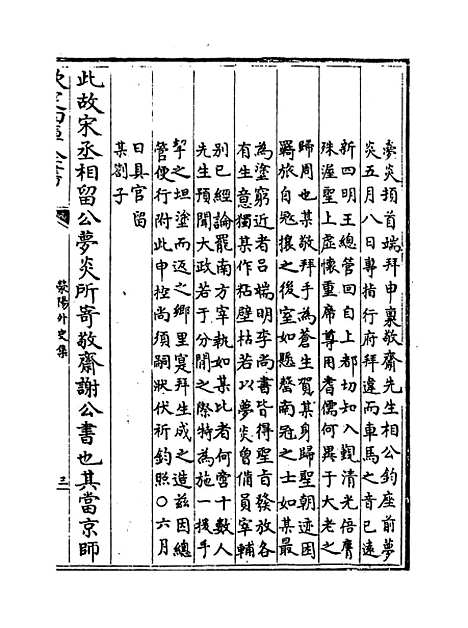 夢炎頓首端拜申稟敬齋先生相公鈞座前夢
炎五月八日專指行府拜違而車馬之音已遠
新四明王總管回自上都切知入覲清光倍膺
殊渥聖上虛懷重席尊用耆儒何異于大老之
歸周也某敬拜手為蒼生賀某身歸聖朝迹困
羇旅自攘之後室如懸罄南冠之士如某最
為塗窮近者呂端明李尚書皆得聖旨發放各
有生意獨某作粘壁枯若以夢炎曾備員宰輔
別已經論罷南方宰執如某比者何啻十數人
先生預聞大政若于分閒之際特為施一援手
挈之坦塗而返之鄉里寔拜生成之造茲因總
管使行附此申控尚須嗣狀伏祈鈞照○六月
日具官留
某劄子
此故宋丞相留公夢炎所寄敬齋謝公書也其當京師
欽定四庫全書
滎陽外史集
三